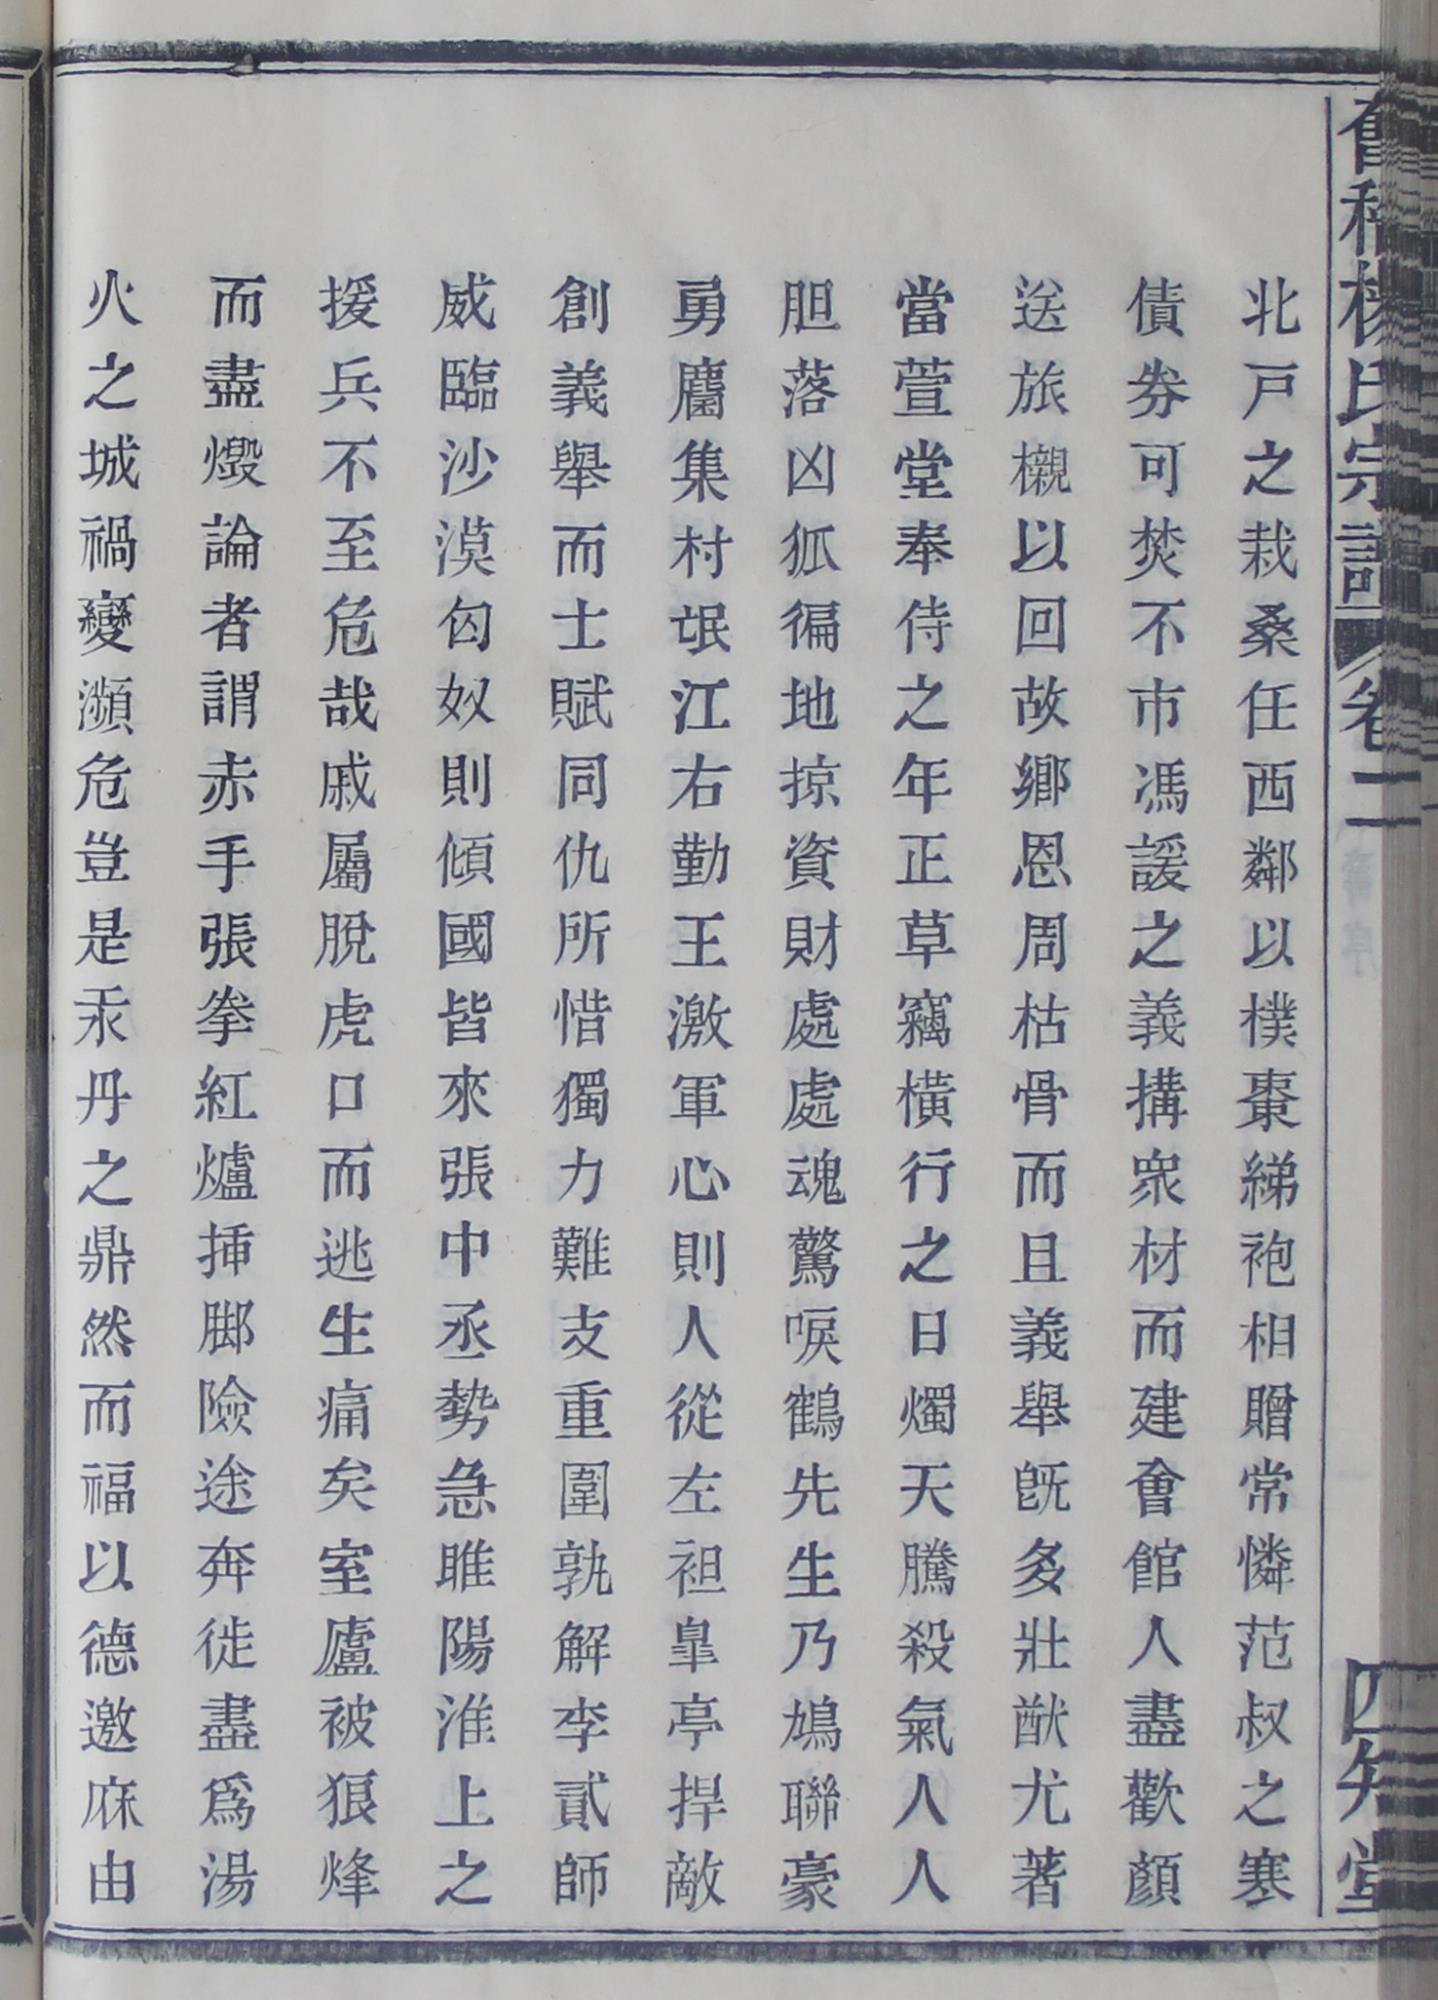 楊氏宗譜 卷二 四知堂
北戸之栽桑任西鄰以樸棗綈袍相贈常憐范叔之寒
債劵可焚不市馮諼之義搆衆材而建會館人盡歡顏
送旅櫬以回故鄉恩周枯骨而且義舉旣多壯猷尤著
當萱堂奉侍之年正草竊橫行之日燭天騰殺氣人人
胆落凶狐徧地掠資財處處魂驚唳鶴先生乃鳩聯豪
勇麕集村氓江右勤王激軍心則人從左袒皐亭捍敵
創義舉而士賦同仇所惜獨力難支重圍孰解李貳師
威臨沙漠匈奴則傾國皆來張中丞勢急睢陽淮上之
援兵不至危哉戚屬脫虎口而逃生痛矣室廬被狼烽
而盡燬論者謂赤手張拳紅爐揷脚險途奔徙盡爲湯
火之城禍變瀕危豈是汞丹之鼎然而福以德邀庥由